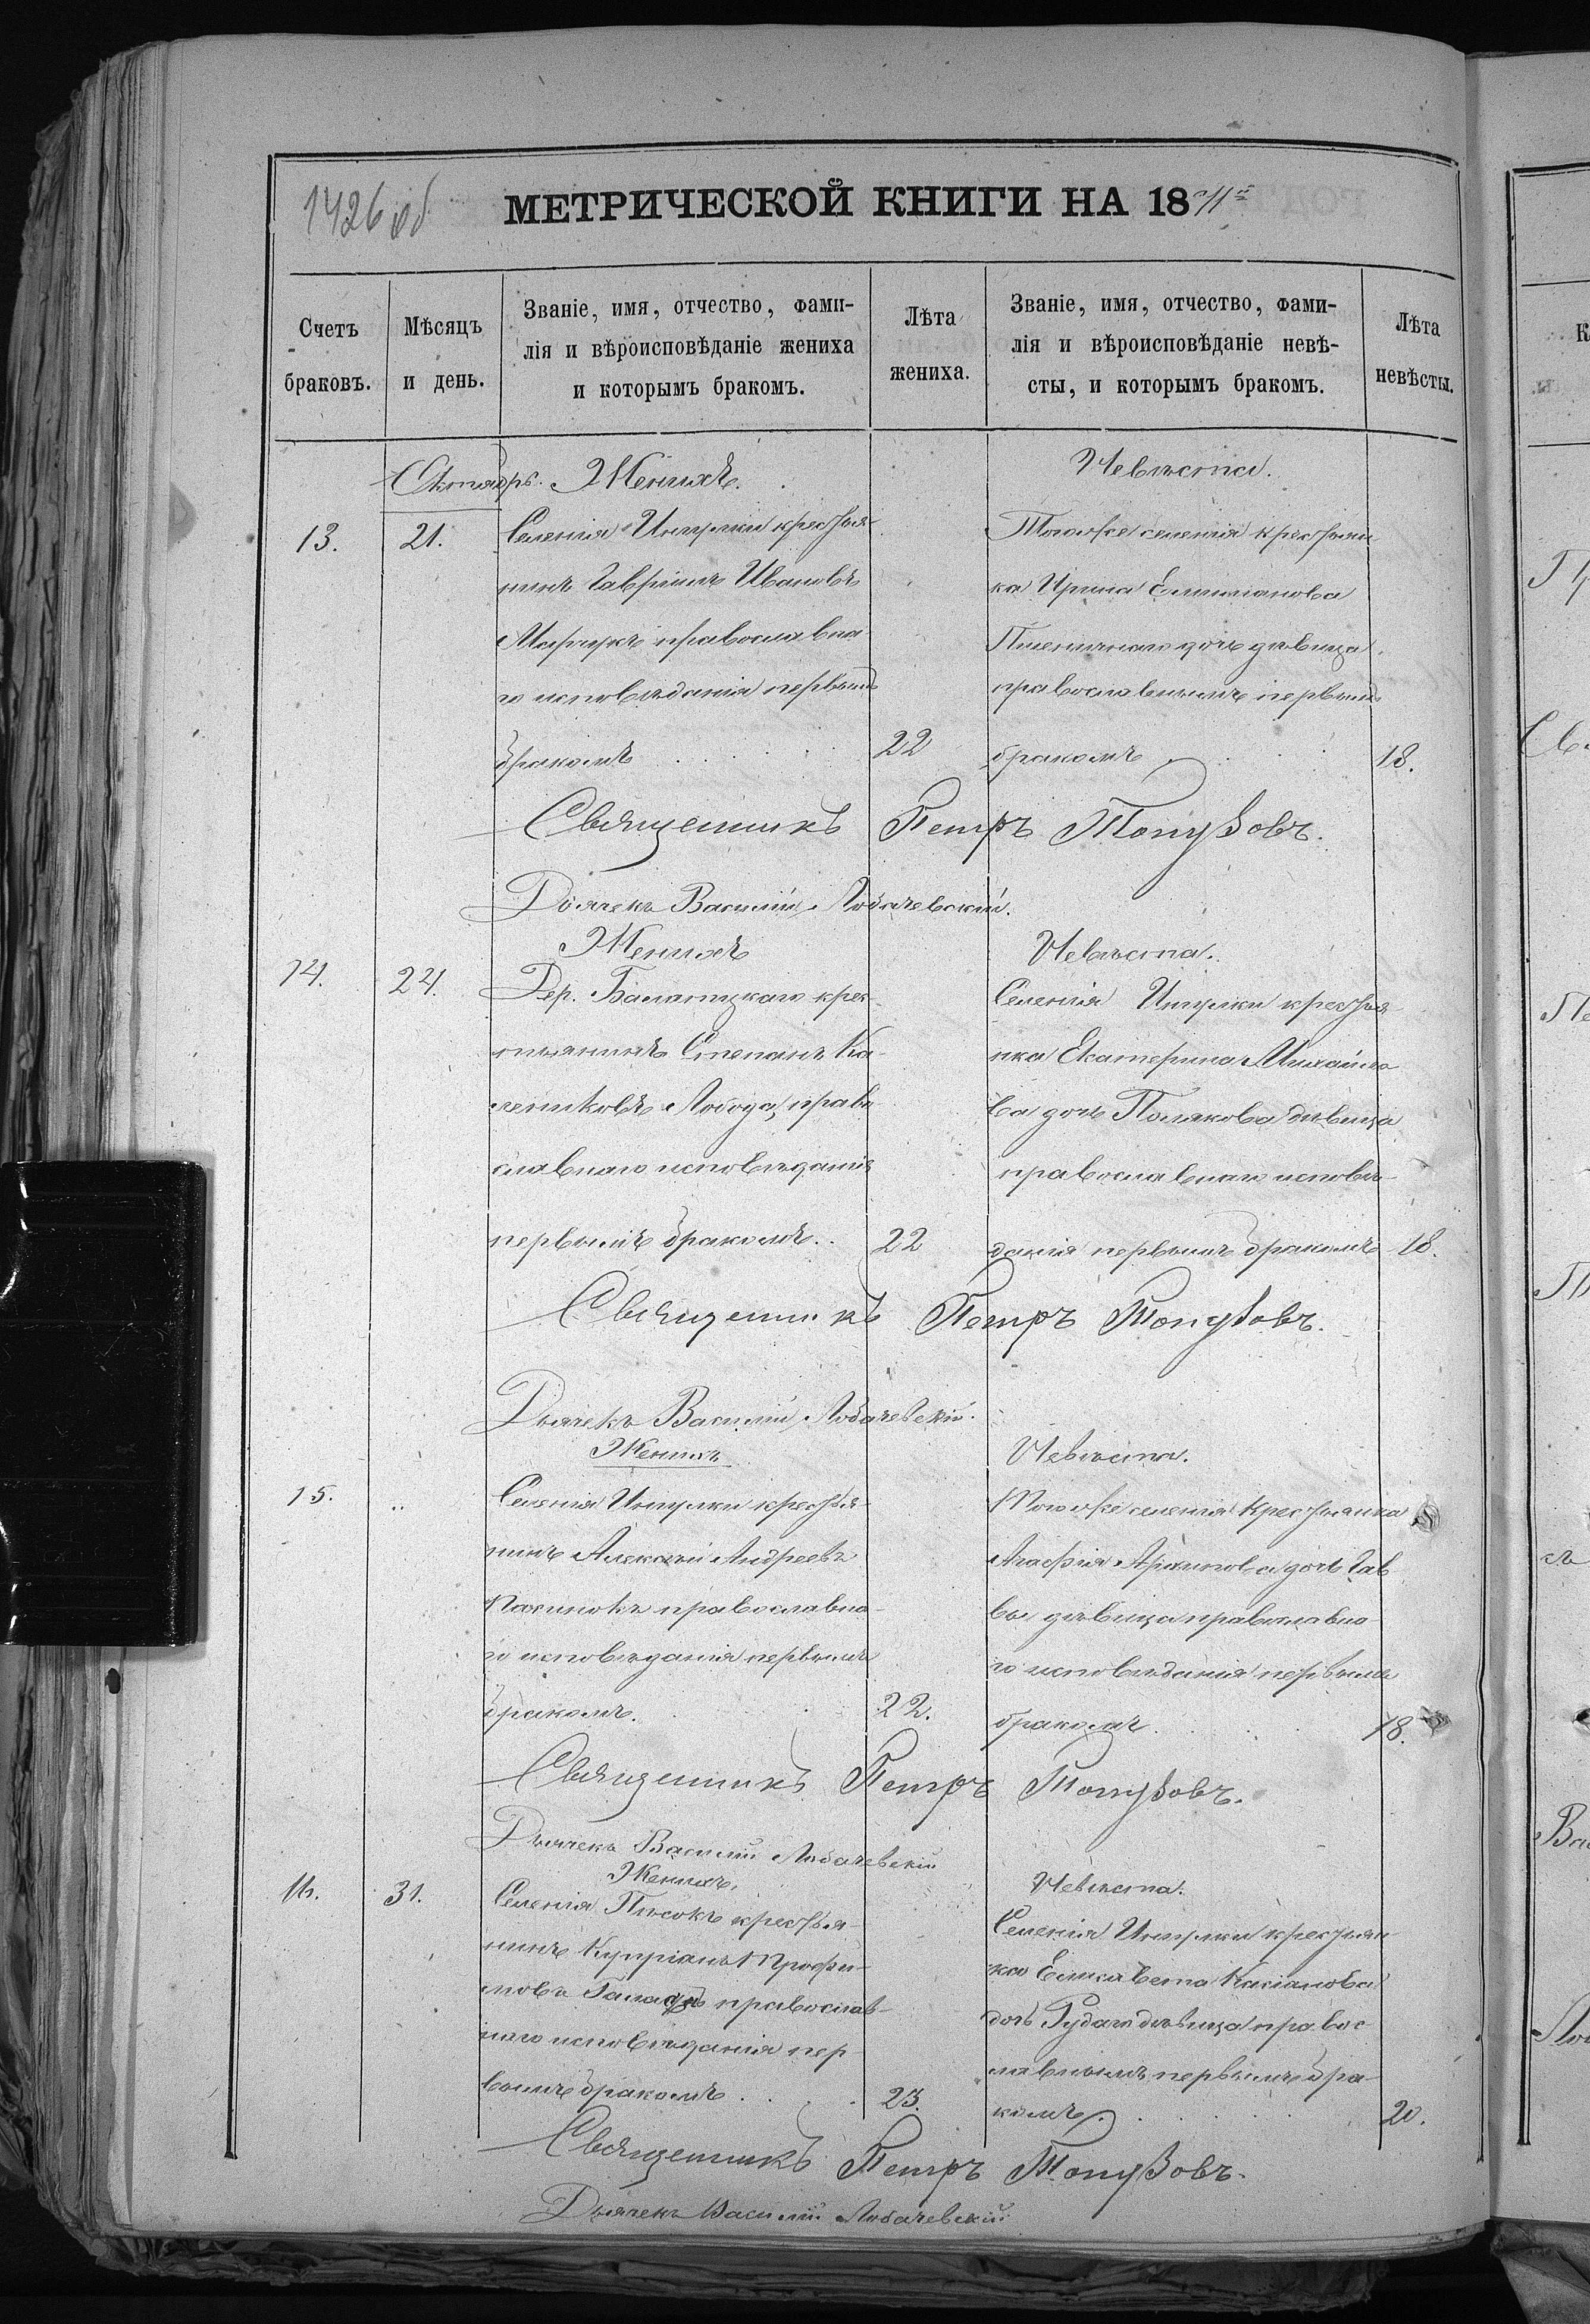 1426 об
МЕТРИЧЕСКОЙ КНИГИ НА 18
Счетъ браковъ.
Мѣсяцъ и день.
Званіе, имя, отчество, фами-
лія и вѣроисповѣданіе жениха
и которымъ бракомъ.
Лѣта жениха.
Званіе, имя, отчество, фами-
лія и вѣроисповѣданіе невѣ-
сты, и которымъ бракомъ.
Лѣта невѣсты.
Октябрь. Женихъ.
13. 21. Селенія крестья-
нинъ Гавріилъ Ивановъ
православна-
го исповѣданія первымъ
бракомъ 22
Невѣста.
Того же селенія крестьян
ка Ирина Емиліанова
дочь дѣвица
православнымъ первымъ
бракомъ 18.
Священникъ Петръ Топузовъ.
Дьячекъ Василій Лобачевскій.
Женихъ
14. 24. Дер. крес-
тьянинъ Степанъ Ка-
лениковъ Лобода, право
славнаго исповѣданія
первымъ бракомъ.. 22
Невѣста.
Селенія крестья-
нка Екатерина Михайло
ва дочь Полякова дѣвица
православнаго исповѣ-
данія первымъ бракомъ 18.
Священникъ Петръ Топузовъ.
Дьячекъ Василій Лобачевскій.
Женихъ
15. .. Селенія крестья-
нинъ Алексѣй Андреевъ
православна-
го исповѣданія первымъ
бракомъ. 22.
Невѣста.
Того же селенія крестьянка
Агафія дочь
дѣвица православна
го исповѣданія первымъ
бракомъ. 18.
Священникъ Петръ Топузовъ.
Дьячекъ Василій Лобачевскій
Женихъ.
16. 31. Селенія Пѣсокъ крестья-
нинъ Купріанъ Трофи-
мовъ православ-
наго исповѣданія пер
вымъ бракомъ 23.
Невѣста.
Селенія крестьян
ка Елисавета Касіанова
дочь Рудаго дѣвица правос
лавнымъ первымъ бра
комъ. 20.
Священникъ Петръ Топузовъ.
Дьячекъ Василій Лобачевскій